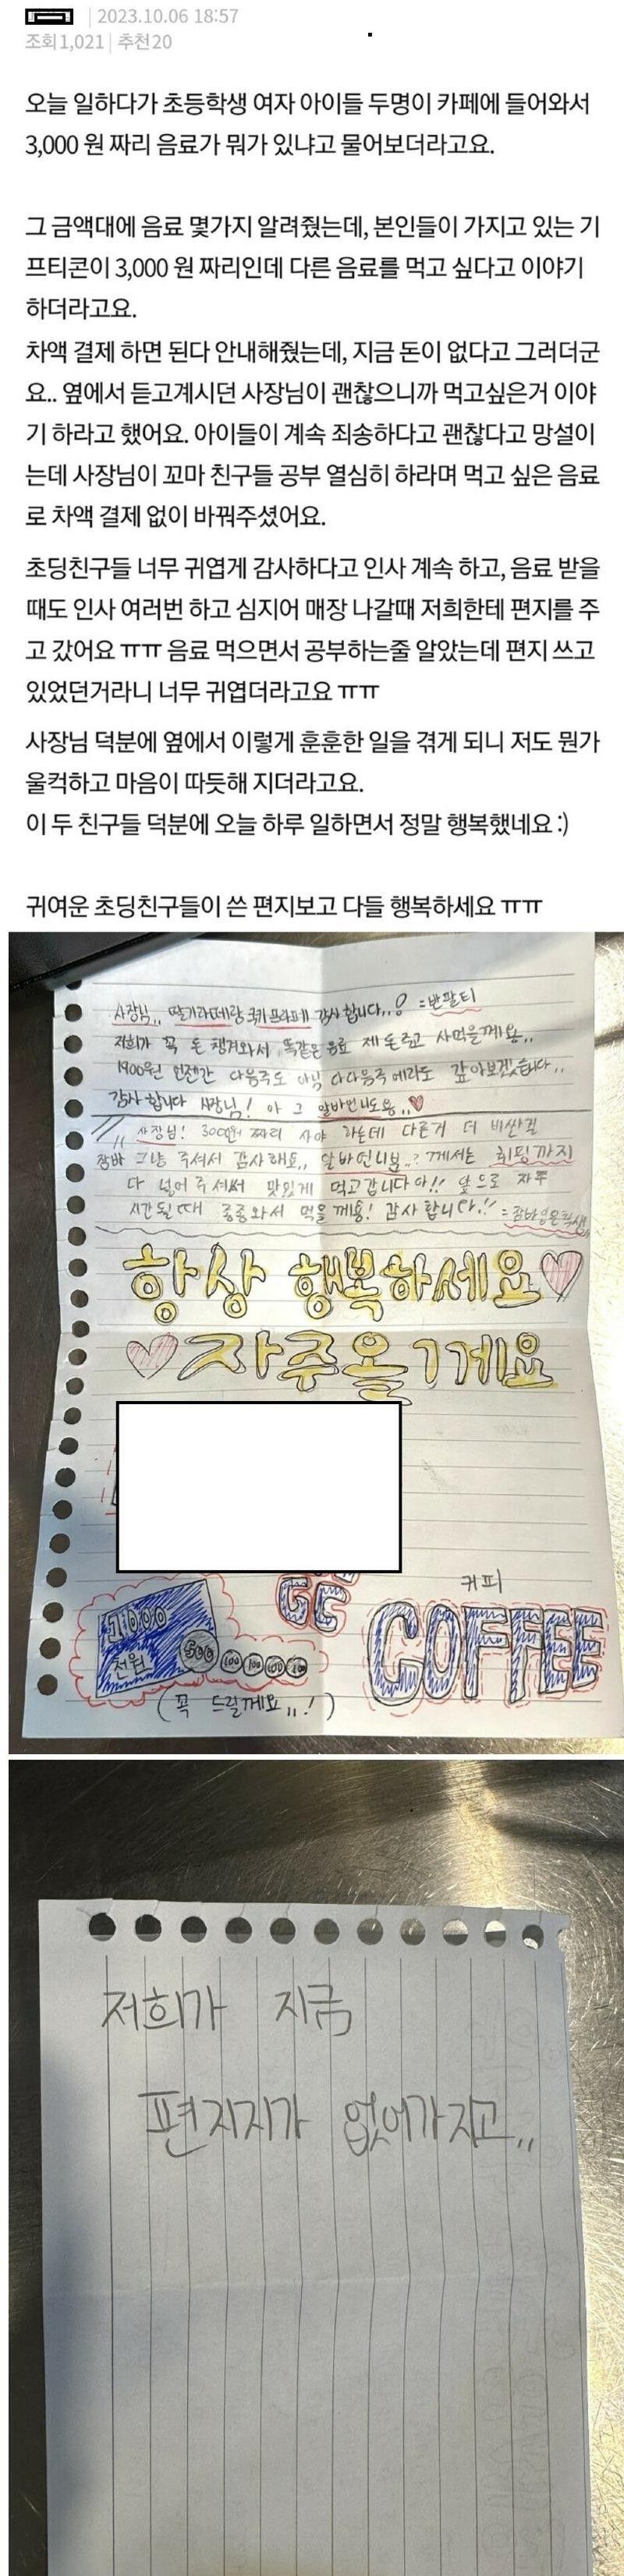 2023.10.06 18:57
조회 1,021 | 추천 20
오늘 일하다가 초등학생 여자 아이들 두명이 카페에 들어와서
3,000 원 짜리 음료가 뭐가 있냐고 물어보더라고요.
그 금액대에 음료 몇가지 알려줬는데, 본인들이 가지고 있는 기
프티콘이 3,000 원 짜리인데 다른 음료를 먹고 싶다고 이야기
하더라고요.
차액 결제 하면 된다 안내해줬는데, 지금 돈이 없다고 그러더군
요.. 옆에서 듣고계시던 사장님이 괜찮으니까 먹고싶은거 이야
기 하라고 했어요. 아이들이 계속 죄송하다고 괜찮다고 망설이
는데 사장님이 꼬마 친구들 공부 열심히 하라며 먹고 싶은 음료
로 차액 결제 없이 바꿔주셨어요.
초딩친구들 너무 귀엽게 감사하다고 인사 계속 하고, 음료 받을
때도 인사 여러번 하고 심지어 매장 나갈때 저희한테 편지를 주
고 갔어요 ㅠㅠ 음료 먹으면서 공부하는줄 알았는데 편지 쓰고
있었던거라니 너무 귀엽더라고요 ㅠㅠ
사장님 덕분에 옆에서 이렇게 훈훈한 일을 겪게 되니 저도 뭔가
울컥하고 마음이 따듯해 지더라고요.
이 두 친구들 덕분에 오늘 하루 일하면서 정말 행복했네요 :)
귀여운 초딩친구들이 쓴 편지보고 다들 행복하세요 ㅠㅠ
사장님,, 딸기라떼랑 쿠키프라페 감사합니다,, =반팔티
저희가 꼭 돈 챙겨와서 똑같은 음료 제 돈주고 사먹을께용,,
1900원 언젠간 다음주도 아님 다다음주에라도 갚아보겠습니다,,
감사합니다 사장님! 아 그 알바언니도용,,♥
사장님! 3000원 짜리 사야 하는데 다른거 더 비싼걸
그냥 주셔서 감사해요,, 알바언니분..? 께서는 휘핑까지
다 넣어주셔써 맛있게 먹고갑니다아!! 앞으로 자주
시간될때 종종와서 먹을께용! 감사합니다!!
항상 행복하세요♡
♡자주올1게요
1000
천원
500
100 100 100 100
(꼭 드릴께요,,!)
커피
COFFEE
저희가 지금
편지지가 없어가지고,,